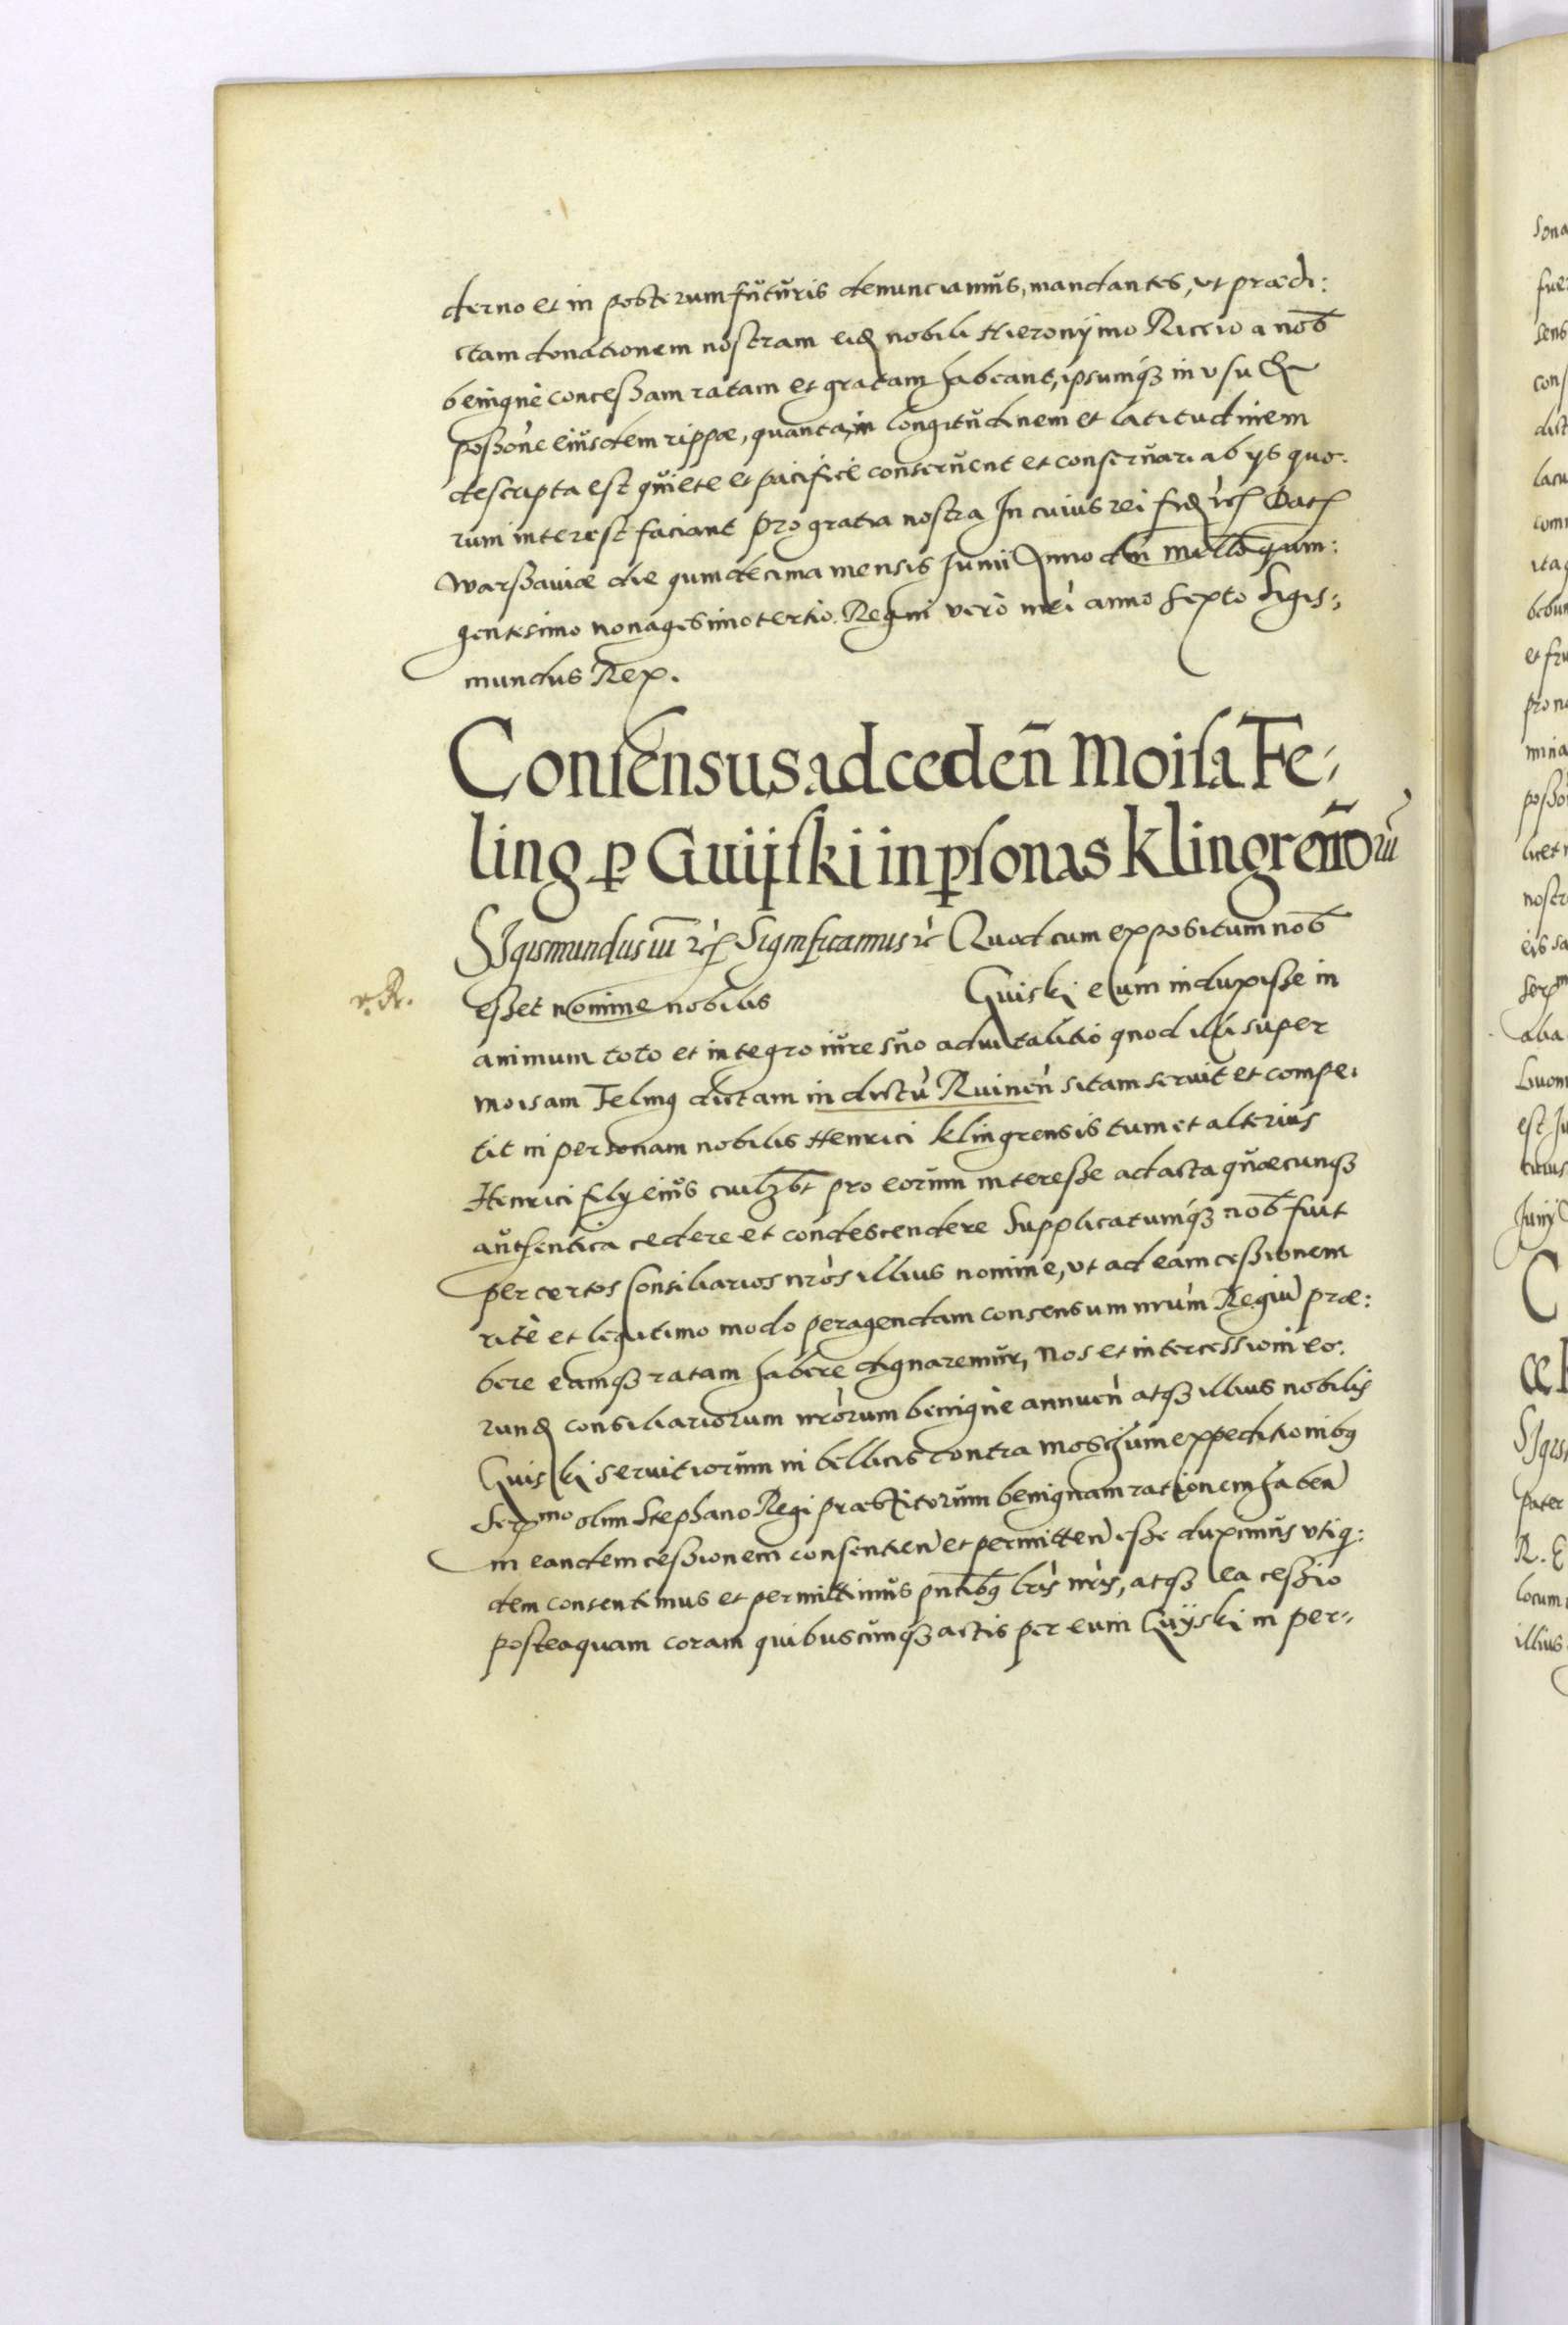 derno et in posterum futuris denunciamus, mandantes, ut prædi:
ctam donationem nostram eidem nobili Hieronÿmo Riccio a nob̄
benignè concessam ratam et gratam habeant, ipsumq́ꝫ in usu &
possōne eiusdem rippæ, quanta in longitudinem et latitudinem
descripta est quiete et pacificè conservent et conservari ab ijs quo:
rum interest faciant pro gratia nostra In cuius rei fidem etc Dat
Warssaviæ die quindecima mensis Junii Anno dn̄i millō quin:
gentesimo nonagesimo tertio. Regni verò nr̄i anno sexto Sigis:
mundus Rex.
Consensus ad ceden̄ Moisa Fe:
ling ꝑ Guijski in ꝑsonas Klingren̄oꝝ
Sigismundus iii etc Significamus etc Quod cum expositum nob̄
esset nomine nobilis Guiski eum induxisse in
animum toto et integro iure suo advitalitio quod illi super
moisam Feling dictam in dictu Ruinen̄ sitam servit et compe:
tit in personam nobilis Henrici Klingrensis tum et alterius
Henrici filij eius cuilꝫbt pro eorum interesse ad acta quæcunqꝫ
authentica cedere et condescendere Supplicatumq́ꝫ nob̄ fuit
per certos consiliarios nr̄os illius nomine, ut ad eam cessionem
ritè et legitimo modo peragendam consensum nr̄um Regiū præ:
bere eamqꝫ ratam habere dignaremur, Nos et intercessioni eo:
rundem consiliariorum nr̄orum benignè annuen̄ atqꝫ illius nobilis
Guiski servitiorum in bellicis contra moschum expeditionibꝰ
Serᵐᵒ olim Stephano Regi præstitorum benignam rationem haben̄
in eandem cessionem consentien̄ et permitten̄ esse duximus utiq:
dem consentimus et permittimus pn̄tibꝰ lr̄is nr̄is, atqꝫ ea cessio
posteaquam coram quibuscunqꝫ actis per eum Guÿski in per: